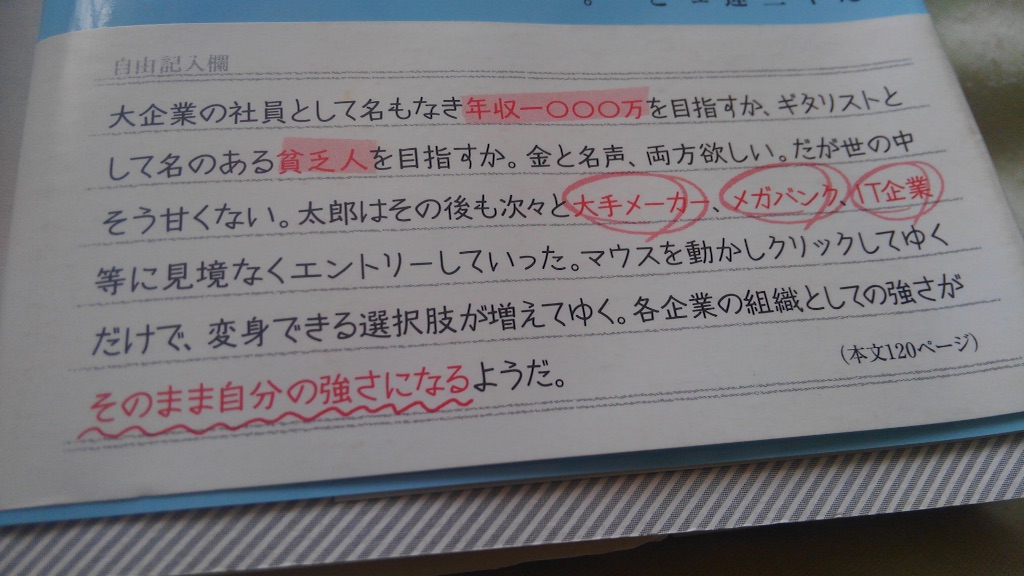 自由記入欄
大企業の社員として名もなき年収一〇〇〇万を目指すか、ギタリストと
して名のある貧乏人を目指すか。金と名声、両方欲しい。だが世の中
そう甘くない。太郎はその後も次々と大手メーカー、メガバンク、IT企業
等に見境なくエントリーしていった。マウスを動かしクリックしてゆく
だけで、変身できる選択肢が増えてゆく。各企業の組織としての強さが
そのまま自分の強さになるようだ。
(本文120ページ)